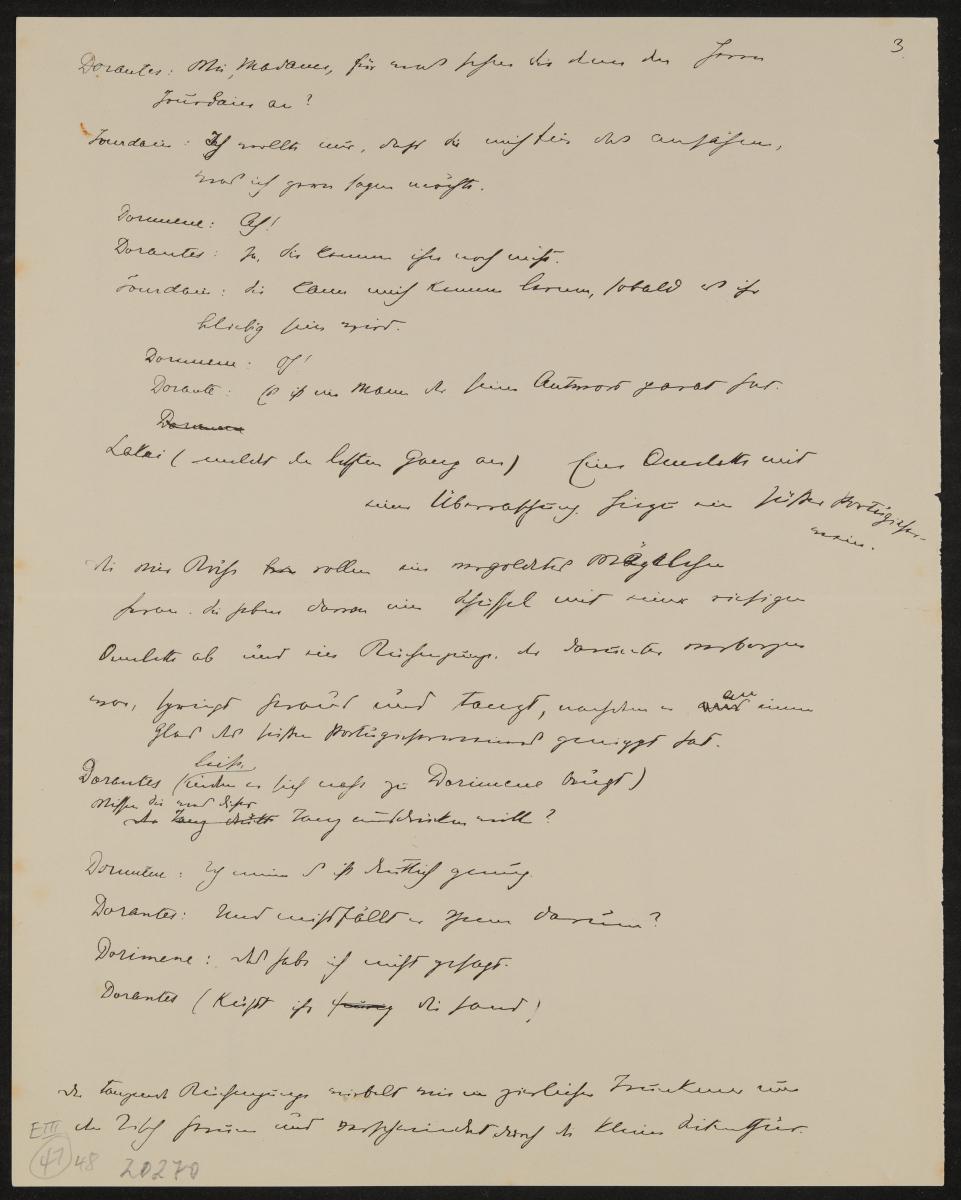 3.
Dorantes: Wie, Madame, für was sehen Sie denn den Herrn
Jourdain an?
Jourdain: Ich wollte nur, daß Sie mich für das ansähen,
was ich gern sagen möchte.
Dorimene: Ah!
Dorantes: Ja, Sie kennen ihn noch nicht.
Jourdain: Sie kann mich kennen lernen, sobald es ihr
beliebig sein wird.
Dorimene: Oh!
Dorante: Es ist ein Mann der seine Antwort parat hat.
Dorimene
Lakai (meldet den letzten Gang an) Eine Omelette mit
einer Überraschung. Hiezu ein süßer Portugieser-
wein.
Die vier Köche rollen ein vergoldetes Wägelchen
heran. Sie heben davon eine Schüssel mit einer riesigen
Omelette ab und ein Küchenjunge, der darunter verborgen
war, springt heraus und tanzt, nachdem er an einem
Glas des süßen Portugieserweines genippt hat.
Dorantes (leise, indem er sich nahe zu Dorimene beugt)
Wissen Sie was dieser
Tanz ausdrücken will?
Dorimene: Ich meine es ist deutlich genug.
Dorantes: Und mißfällt er Ihnen darum?
Dorimene: Das habe ich nicht gesagt.
Dorantes (küßt ihr die Hand)
Der tanzende Küchenjunge wirbelt wie in zierlicher Trunkenheit um
den Tisch herum und verschwindet durch die kleine Seitenthür.
EIII
47 48 20270